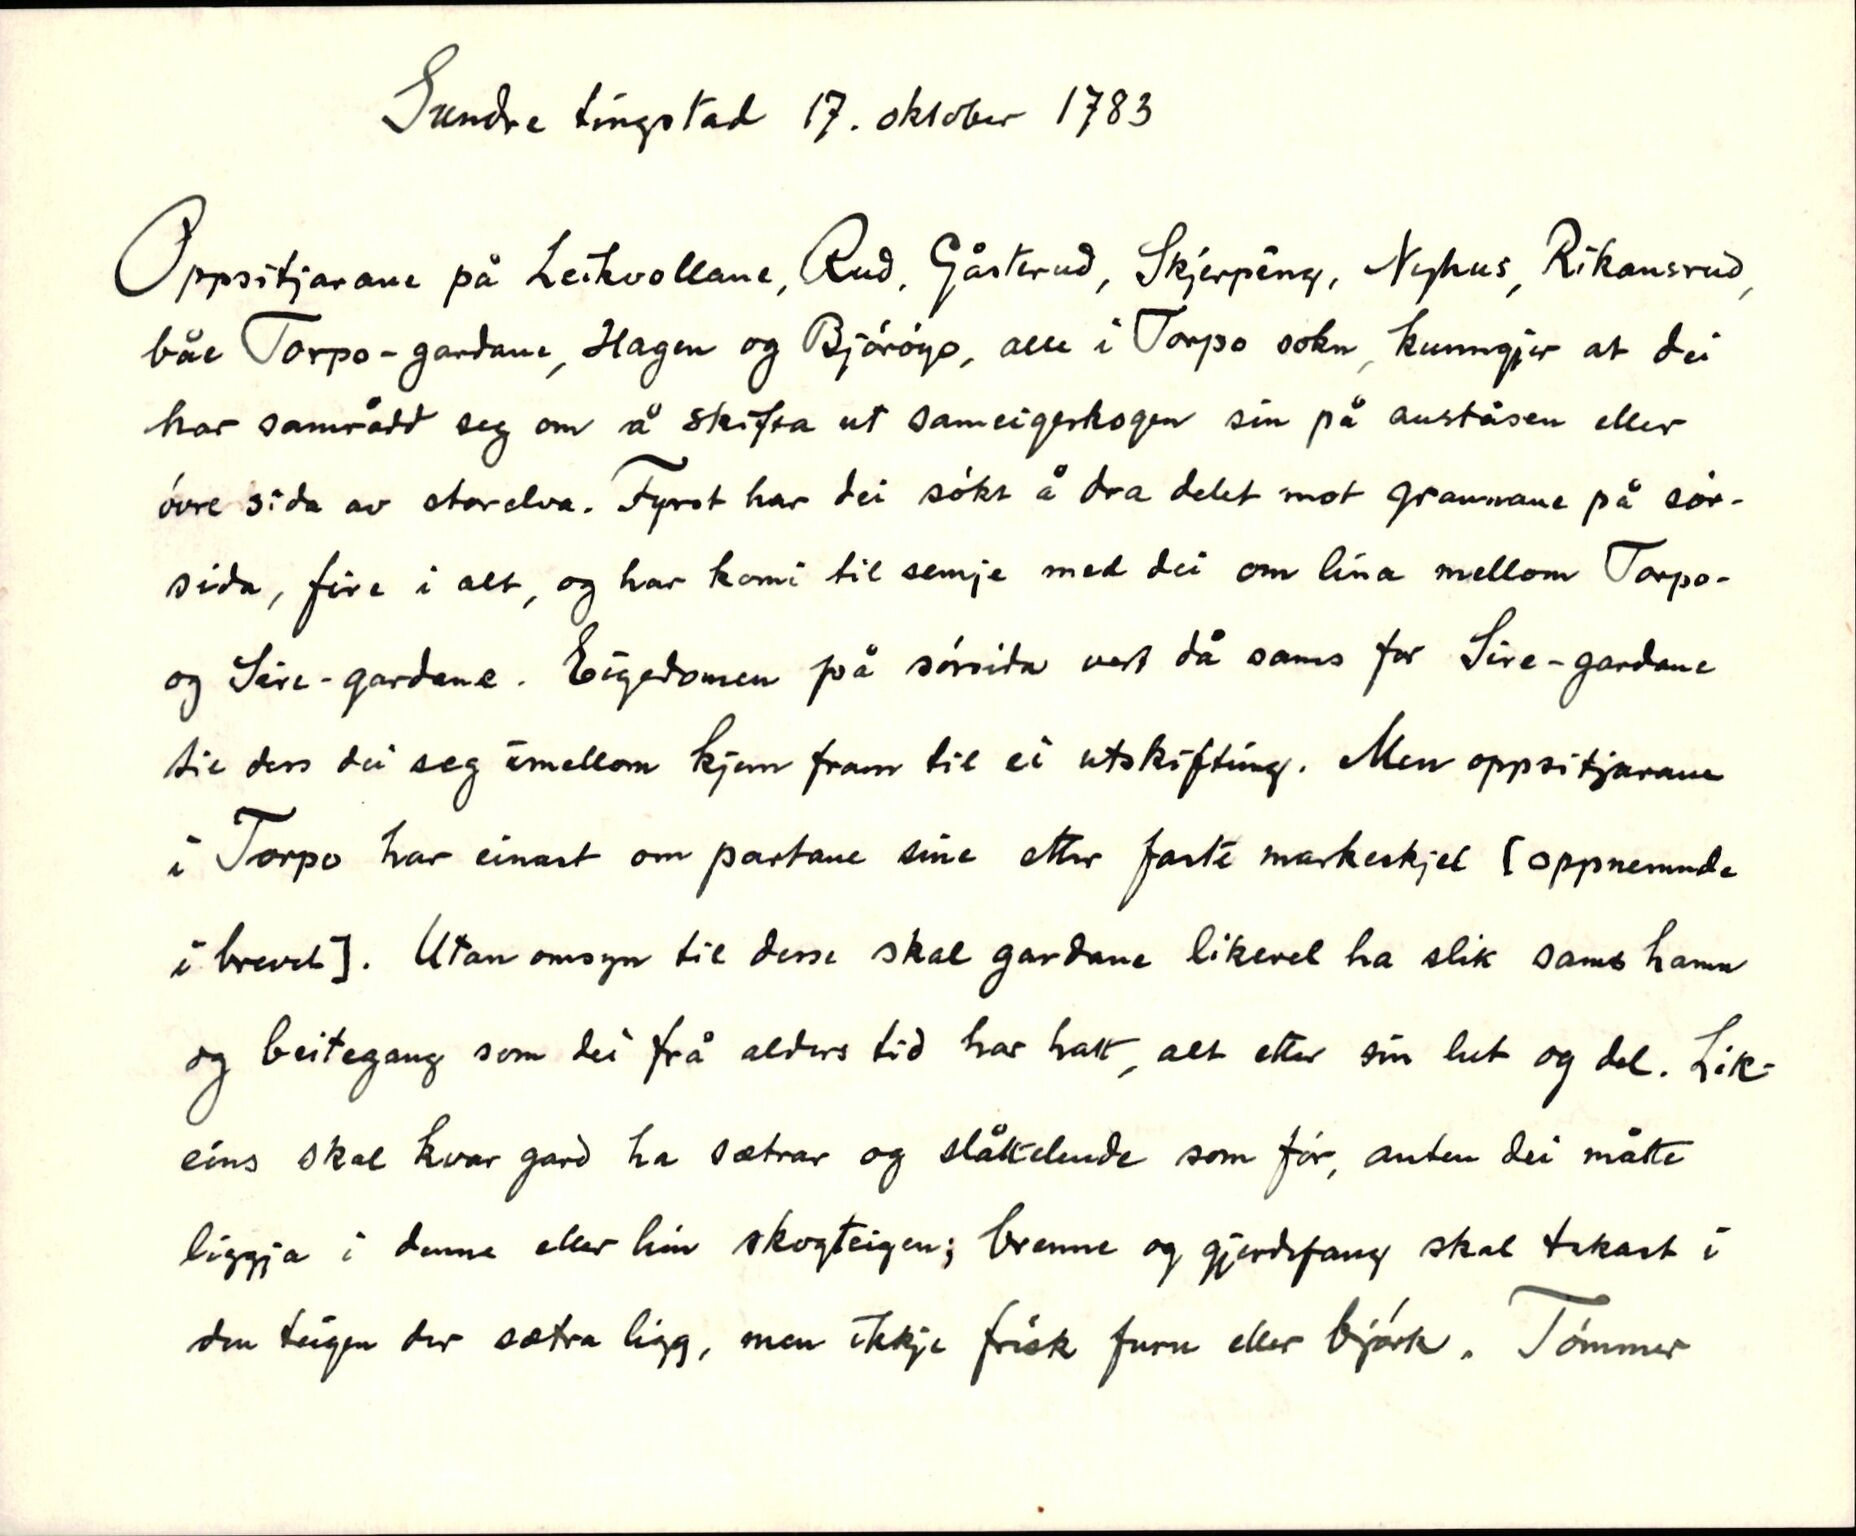 Sundre tingstad 17. oktober 1783
Oppsitjarane på Leikvollane, Rud, Gåsterud, Skjerping, Nyhus, Rikansrud,
båe Torpo-gardane, Hagen og Bjóróyo, alle i Torpo sokn, kunngjer at dei
har samrådd seg om å skifta ut sameigeskogen sin på auståsen eller
óvre sida av storelva. Fyrst har dei sókt å dra delet mot grannane på sór-
sida, fire i alt, og har komi til semje med dei om lina mellom Torpo-
og Sire-gardane. Eigedomen på sórsida vert då sams for Sire-gardane
til dess dei seg imellom kjem fram til ei utskifting. Men oppsitjarane
i Torpo har einast om partane sine etter faste markeskjel [oppnemnde
i brevet]. Utan omsyn til desse skal gardane likevel ha slik sams hamn
og beitegang som dei frå alders tid har hatt, alt etter sin lut og del. Lik-
eins skal kvar gard ha sætrar og slåttelende som fór, anten dei måtte
liggja i denne eller hin skogteigen; brenne og gjerdefang skal takast i
den teigen der sætra ligg, men ikkje frisk furu eller bjórk. Tómmer